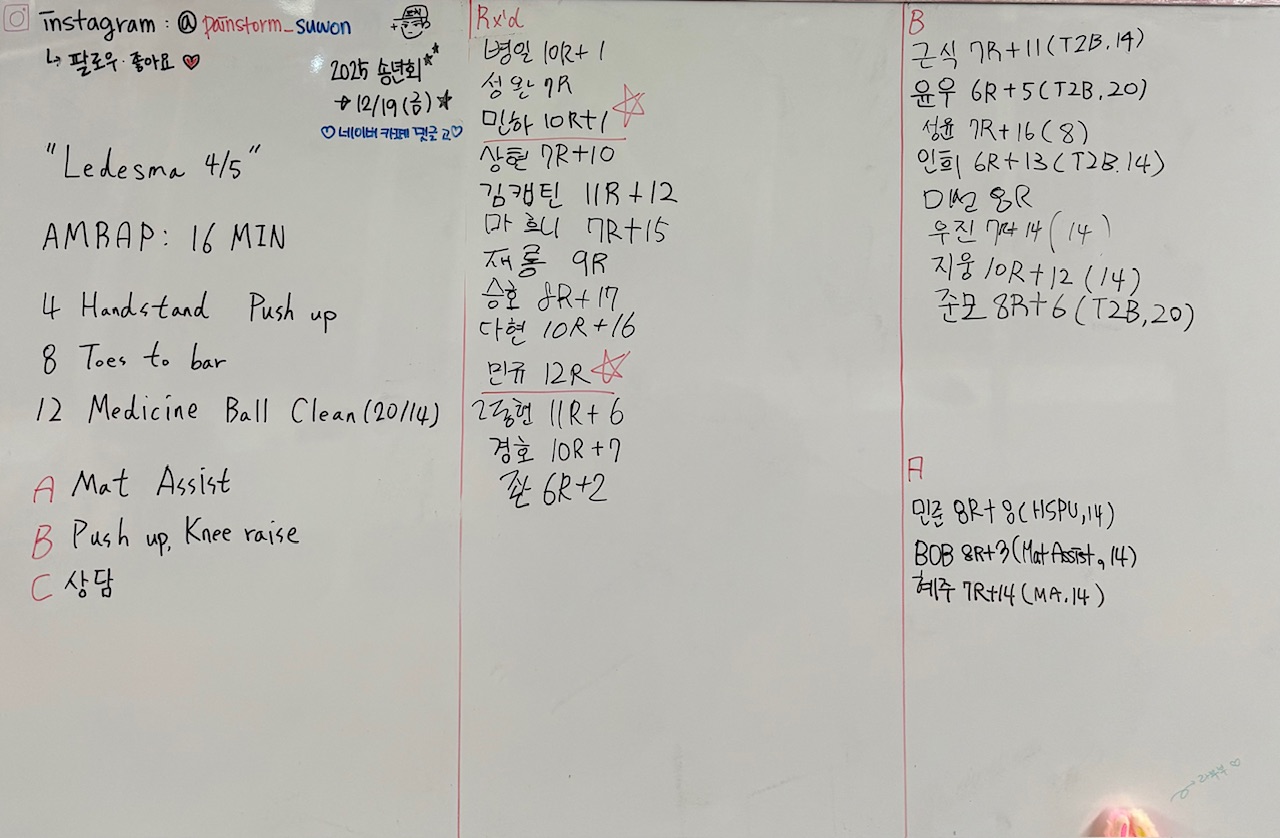 instagram : @ painstorm_suwon
↳ 팔로우·좋아요 ♥
2025 송년회
→ 12/19 (금)
♡ 네이버 카페 댓글 고 ♡
"Ledesma 4/5"
AMRAP: 16 MIN
4 Handstand Push up
8 Toes to bar
12 Medicine Ball Clean (20/14)
A Mat Assist
B Push up, Knee raise
C 상담
Rx'd
병일 10R+1
성완 7R
민하 10R+1
상현 7R+10
김캡틴 11R+12
마호니 7R+15
재롱 9R
승호 8R+17
다현 10R+16
민규 12R
11R+6
경호 10R+7
6R+2
B
근식 7R+11 (T2B, 14)
윤우 6R+5 (T2B, 20)
성윤 7R+16 (8)
인희 6R+13 (T2B. 14)
미선 8R
우진 7R+14 (14)
지웅 10R+12 (14)
준모 8R+6 (T2B, 20)
A
민준 8R+8 (HSPU, 14)
BOB 8R+3 (Mat Assist, 14)
혜주 7R+14 (MA. 14)